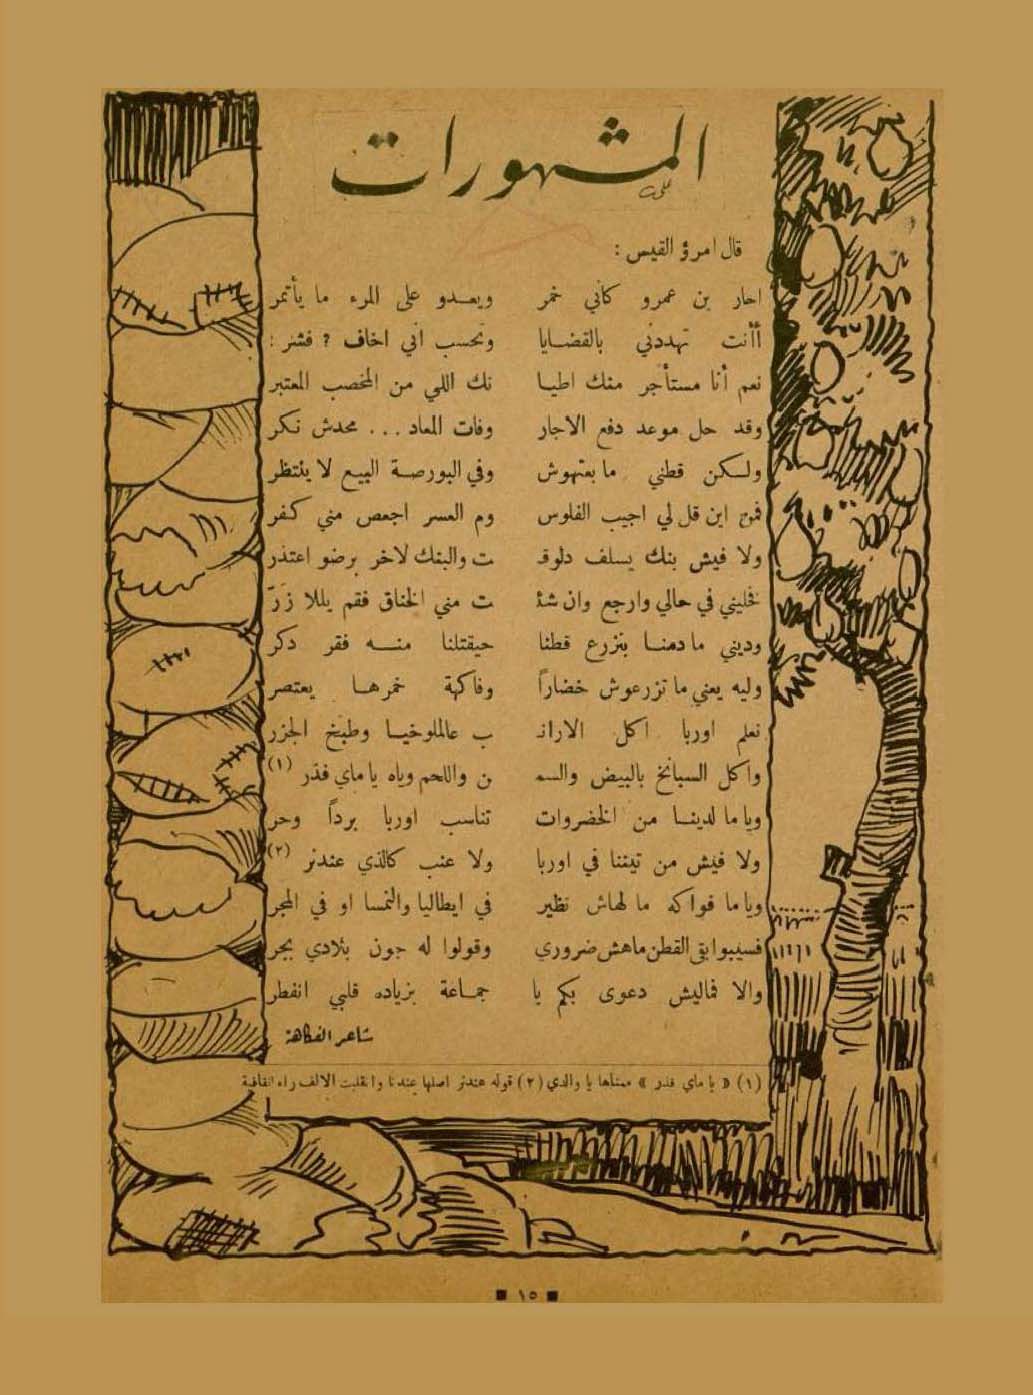 المشهورات
قال امرؤ القيس :
احار بن عمرو كأني خمر ويعدو على المرء ما يأتمر
أأنت تهددني بالقضايا وتحسب اني اخاف ? فشر !
نعم أنا مستأجر منك اطيا نك اللي من المخصب المعتبر
وقد حل موعد دفع الاجار وفات المعاد ... محدش نكر
ولكن قطني ما بعتهوش وفي البورصة البيع لا ينتظر
فمن اين قل لي اجيب الفلوس وم العسر اجعص مني كفر
ولا فيش بنك يسلف دلوقـ ـت والبنك لاخر برضو اعتذر
فخليني في حالي وارجع وان شئـ ـت مني الخناق فقم يللا زرّ
وديني ما دمنا بنزرع قطنا حيقتلنا منه فقر دكر
وليه يعني ما تزرعوش خضاراً وفاكهة خمرها يعتصر
نعلم اوربا اكل الارانـ ـب عالملوخيا وطبخ الجزر
واكل السبانخ بالبيض والسمـ ـن واللحم وياه يا ماي فذر (١)
وياما لدينا من الخضروات تناسب اوربا برداً وحر
ولا فيش من تيننا في اوربا ولا عنب كالذي عندنر (٢)
وياما فواكه ما لهاش نظير في ايطاليا والنمسا او في المجر
فسيبوا بقى القطن ماهش ضروري وقولوا له جون بلادي بجر
والا فماليش دعوى بكم يا جماعة بزياده قلبي انفطر
شاعر الفكاهة
(١) « يا ماي فذر » معناها يا والدي (٢) قوله عندنر اصلها عندنا وانقلبت الالف راء للقافية
■ ١٥ ■